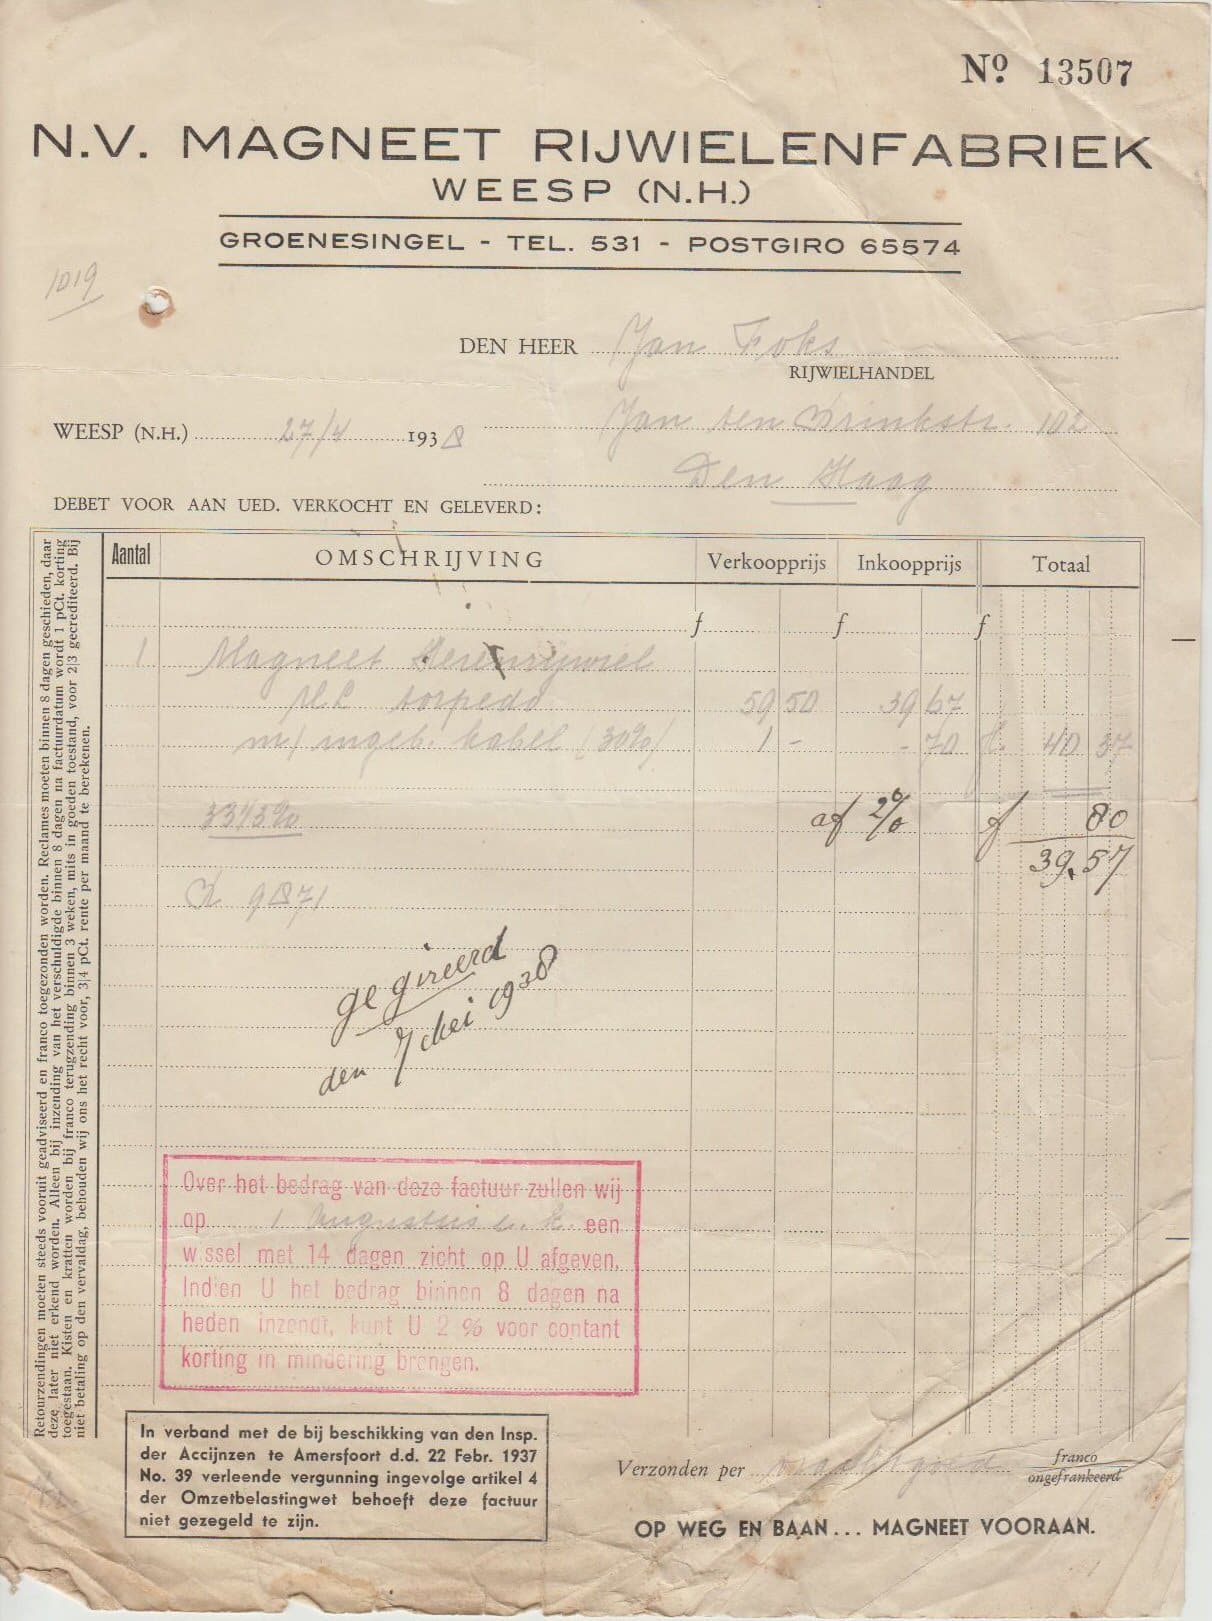 Nº 13507
N.V. MAGNEET RIJWIELENFABRIEK
WEESP (N.H.)
GROENESINGEL - TEL. 531 - POSTGIRO 65574
1019
DEN HEER Jan Foks
RIJWIELHANDEL
WEESP (N.H.) 27/4 1938
Jan ten Brinkstr. 102
Den Haag
DEBET VOOR AAN UED. VERKOCHT EN GELEVERD:
Aantal OMSCHRIJVING Verkoopprijs Inkoopprijs Totaal
f f f
1 Magneet Herenrijwiel
torpedo 59 50 39 67
m/ ingeb. kabel (30%) 1 - - 70 f. 40 37
33 1/3% af 2% f 80
39.57
K 9871
gegireerd
den 7 Mei 1938
Over het bedrag van deze factuur zullen wij
op 1 Augustus e.k. een
wissel met 14 dagen zicht op U afgeven.
Indien U het bedrag binnen 8 dagen na
heden inzendt, kunt U 2 % voor contant
korting in mindering brengen.
Retourzendingen moeten steeds vooruit geadviseerd en franco toegezonden worden. Reclames moeten binnen 8 dagen geschieden, daar
deze later niet erkend worden. Alleen bij inzending van het verschuldigde binnen 8 dagen na factuurdatum wordt 1 pCt. korting
toegestaan. Kisten en kratten worden bij franco terugzending binnen 3 weken, mits in goeden toestand, voor 2|3 gecrediteerd. Bij
niet betaling op den vervaldag, behouden wij ons het recht voor, 3|4 pCt. rente per maand te berekenen.
In verband met de bij beschikking van den Insp.
der Accijnzen te Amersfoort d.d. 22 Febr. 1937
No. 39 verleende vergunning ingevolge artikel 4
der Omzetbelastingwet behoeft deze factuur
niet gezegeld te zijn.
Verzonden per vrachtgoed franco
ongefrankeerd
OP WEG EN BAAN... MAGNEET VOORAAN.